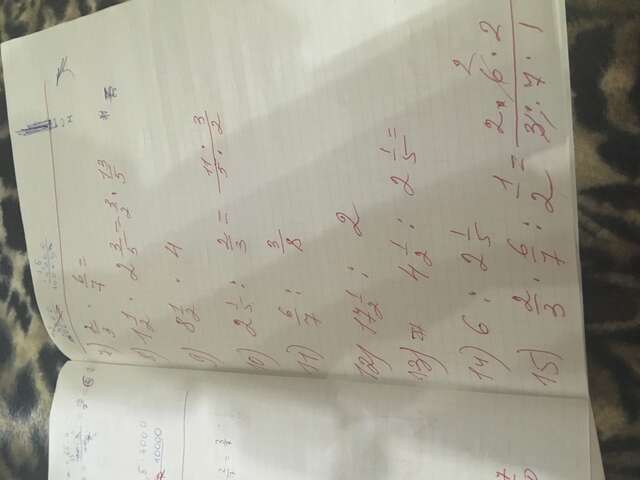 7) 2/3 · 6/7 =
8) 1 1/2 · 2 3/5 = 3/2 · 13/5
9) 8 1/2 · 4
10) 2 1/5 : 2/3 = 11 · 3 / 5 · 2
11) 6/7 : 3/8
12) 17 1/2 : 2
13) 4 1/2 : 2 1/5 =
14) 6 : 2 1/5
2
15) 2/3 · 6/7 : 1/2 = 2 · 6 · 2 / 3 · 7 · 1